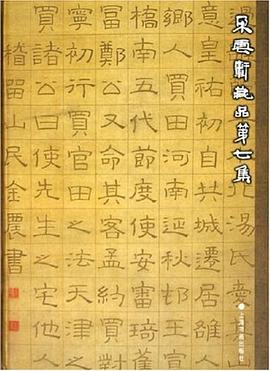 朵云轩藏品第七集
意皇祐初自共城遷居雒
鄉人買田河南延秋
橋南五代節度使安審琦
富鄭公又命其客孟約
寧初行買官田之法天
公曰使先生之宅他人
稽留山民金農書
上海书画出版社